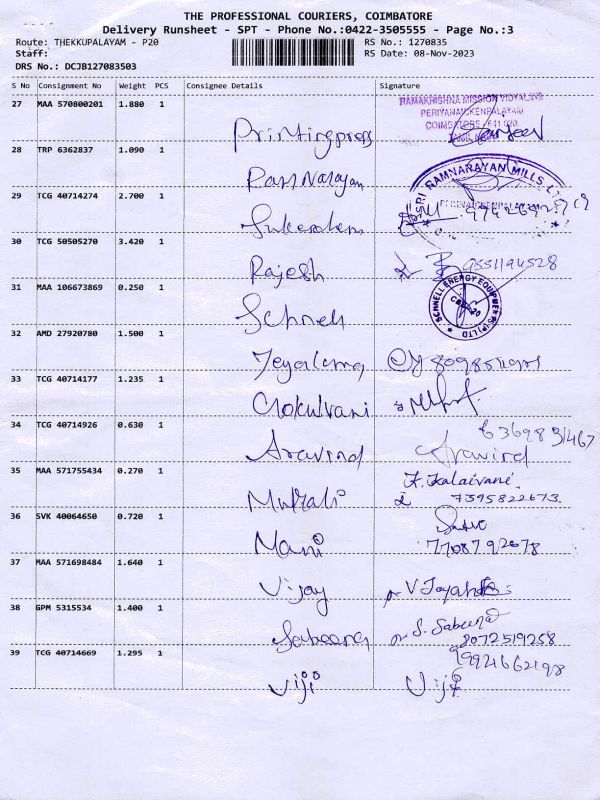 THE PROFESSIONAL COURIERS, COIMBATORE
Delivery Runsheet - SPT - Phone No.:0422-3505555 - Page No.:3
Route: THEKKUPALAYAM - P20 RS No.: 1270835
Staff: RS Date: 08-Nov-2023
DRS No.: DCJB127083503
S No Consignment No Weight PCS Consignee Details Signature
27 MAA 570800201 1.880 1
RAMAKRISHNA MISSION VIDYALAYA
PERIYANAICKENPALAYAM
COIMBATORE - 641 020
TAMIL NADU
Printingpress
28 TRP 6362837 1.090 1
Ramnarayan SRI RAMNARAYAN MILLS
29 TCG 40714274 2.700 1
30 TCG 50505270 3.420 1
Rajesh 9551194528
31 MAA 106673869 0.250 1
Schnell SCHNELL ENERGY EQUIPMENTS (P) LTD
32 AMD 27920780 1.500 1
33 TCG 40714177 1.235 1
Gokulvani
34 TCG 40714926 0.630 1
Aravind Aravind
35 MAA 571755434 0.270 1
K. Kalaivani
7395822673
36 SVK 40064650 0.720 1
Mani 7708792678
37 MAA 571698484 1.640 1
Vijay
38 GPM 5315534 1.400 1
Sabeena S. Sabeena
8072519258
39 TCG 40714669 1.295 1
9994662198
Viji Viji